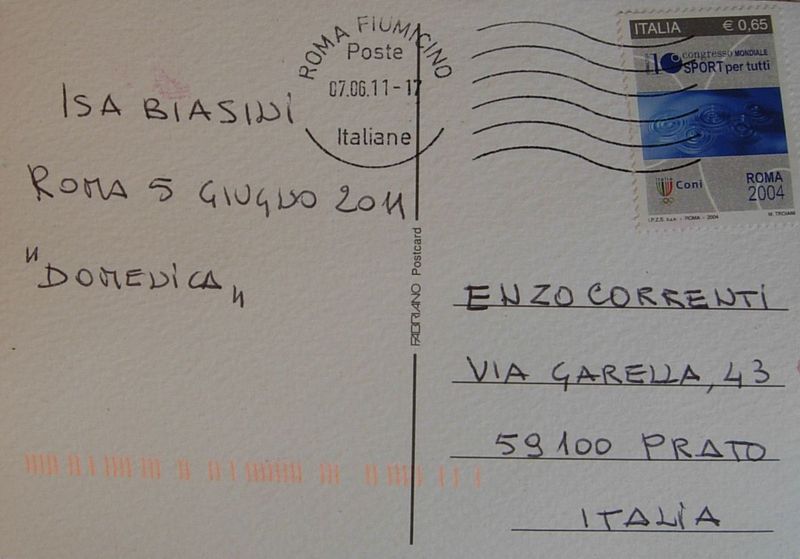 ISA BIASINI
ROMA 5 GIUGNO 2011
"DOMENICA"
ROMA FIUMICINO
Poste
07.06.11-17
Italiane
ITALIA € 0,65
10° congresso MONDIALE
SPORT per tutti
Coni
ROMA
2004
I.P.Z.S. S.p.A. - ROMA - 2004 M. TROIANI
FABRIANO Postcard
ENZO CORRENTI
VIA GARELLA, 43
59100 PRATO
ITALIA